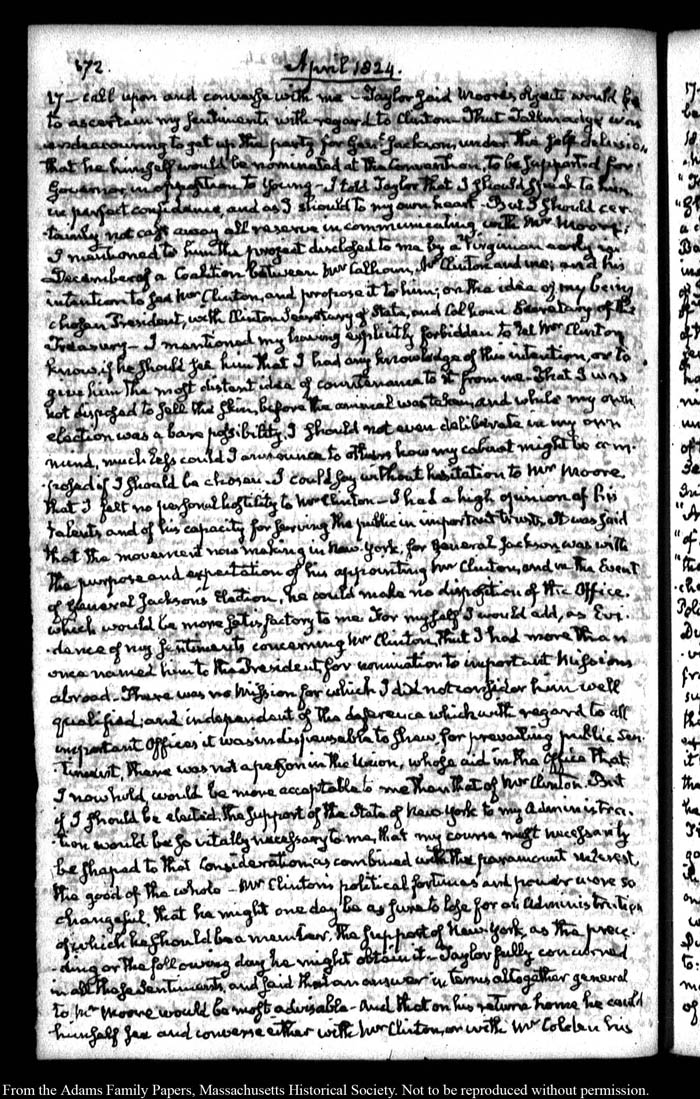 172.
April 1824.
17 — call upon and converse with me — Taylor said Moore's object would be
to ascertain my sentiments with regard to Clinton — That Tallmadge was
endeavouring to get up the party for Genl. Jackson, under the self delusion
that he himself would be nominated at the Convention, to be supported for
Governor in opposition to Young — I told Taylor that I should speak to him
in perfect confidence, and as I should to my own heart — But I should cer-
tainly not cast away all reserve in communicating with Mr Moore;
I mentioned to him the project disclosed to me by a Virginian early in
December of a Coalition between Mr Calhoun, Mr Clinton and me; and his
intention to see Mr Clinton, and propose it to him; on the idea of my being
chosen President, with Clinton Secretary of State, and Calhoun Secretary of the
Treasury — I mentioned my having explicitly forbidden to let Mr Clinton
know, if he should see him that I had any knowledge of this intention, or to
give him the most distant idea of countenance to it from me — That I was
not disposed to sell the skin, before the animal was taken, and while my own
election was a bare possibility, I should not even deliberate in my own
mind, much less could I announce to others how my cabinet might be com-
posed if I should be chosen — I could say without hesitation to Mr Moore
that I felt no personal hostility to Mr Clinton — I had a high opinion of his
talents and of his capacity for serving the public in important trusts. It was said
that the movement now making in New-York, for General Jackson was with
the purpose and expectation of his appointing Mr Clinton, and in the Event
of General Jackson's Election, he could make no disposition of the Office.
which would be more satisfactory to me. For myself I would add, as Evi-
dence of my sentiments concerning Mr Clinton that I had more than
once named him to the President, for nomination to important Missions
abroad — There was no Mission for which I did not consider him well
qualified; and independent of the deference which with regard to all
important Offices it was indispensable to shew, for prevailing public sen-
timent, there was not a person in the Union, whose aid in the Office that
I now hold, would be more acceptable to me than that of Mr Clinton. But
if I should be elected, the support of the State of New-York to my Administra-
tion would be so vitally necessary to me, that my course must necessarily
be shaped to that Consideration, as combined with the paramount interest,
the good of the whole — Mr Clinton's political fortunes and power were so
changeful, that he might one day be as sure to lose for an Administration
of which he should be a member, the support of New-York, as the prece-
ding or the following day he might obtain it — Taylor fully concurred
in all these sentiments, and said that an answer in terms altogether general
to Mr Moore would be most advisable — And that on his return home he could
himself see and converse either with Mr Clinton, or with Mr Colden his
From the Adams Family Papers, Massachusetts Historical Society. Not to be reproduced without permission.